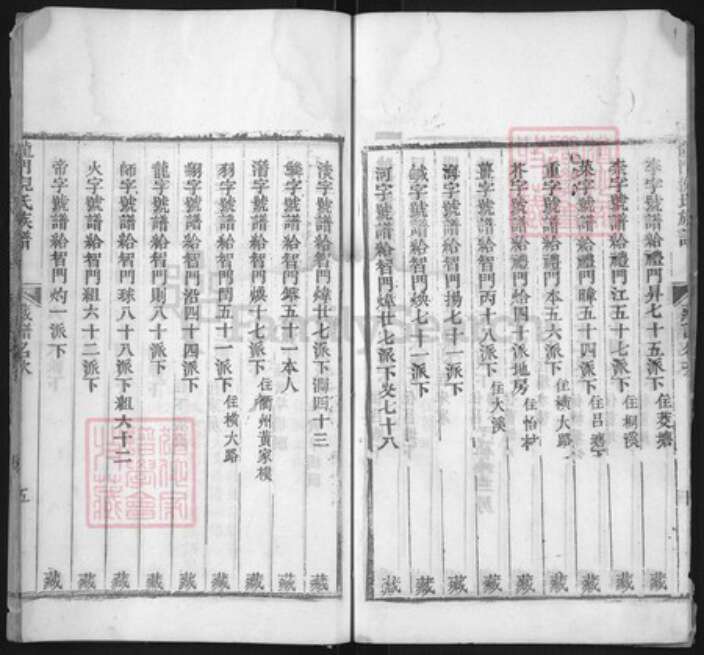 李字號譜給禮門昇七十五派下 住菱塘 藏
柰字號譜給禮門江五十七派下 住桐溪 藏
菜字號譜給禮門暐五十四派下 住呂塘下 藏
重字號譜給禮門本五六派下 住橫大路 藏
芥字號譜給禮門恰四十派地房 住怡村 藏
薑字號譜給智門丙十八派下 住大溪 藏
海字號譜給智門揚七十一派下 藏
鹹字號譜給智門煥七十一派下 藏
河字號譜給智門煒廿七派下文七十八 藏
淡字號譜給智門煒廿七派下澗四十三 藏
鱗字號譜給智門鄉五十一本人 藏
潛字號譜給智門煥十七派下 住衢州黃家樸 藏
羽字號譜給智門問五十一派下 住橫大路 藏
翔字號譜給智門沿四十四派下 藏
龍字號譜給智門則八十派下 藏
師字號譜給智門球八十八派下組六十二 藏
火字號譜給智門組六十二派下 藏
帝字號譜給智門灼一派下 藏
龍門倪氏族譜 藏譜名次 五
FamilySearch